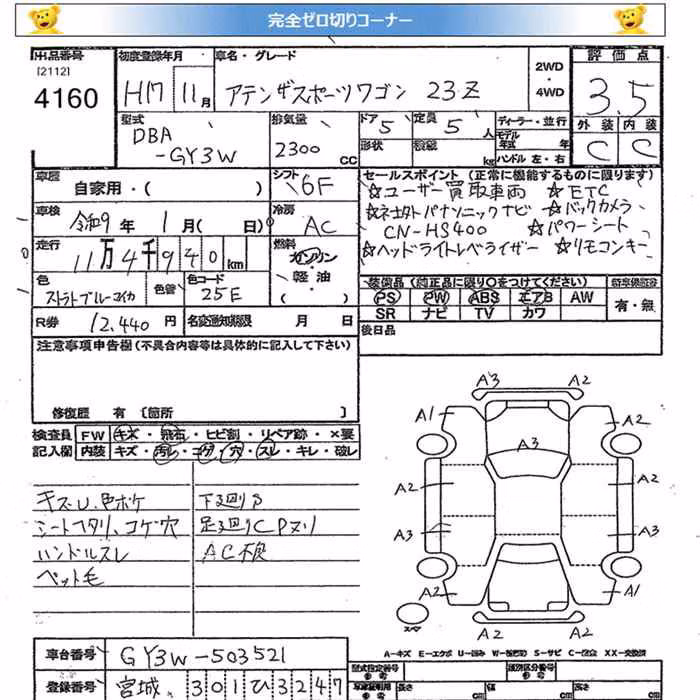 完全ゼロ切りコーナー
出品番号 初度登録年月 車名・グレード 2WD・4WD 評価点
[2112]
4160 H17 11月 アテンザスポーツワゴン 23Z 3.5
型式 排気量 ドア 定員 ディーラー・並行 外装 内装
DBA 5 5人 モデル年式 年 C C
-GY3W 2300cc 形状 積載 kg ハンドル 左・右
車歴 シフト セールスポイント(正常に機能するものに限ります)
自家用・( ) 6F ☆ユーザー買取車両 ☆ETC
車検 冷房 ☆ネオタトパナソニックナビ ☆バックカメラ
令和9年 1月( 日) AC CN-HS400 ☆パワーシート
走行 燃料 ☆ヘッドライトレベライザー ☆リモコンキー
11万4千940km ガソリン・軽油
色 色替 色コード 装備品(純正品に限り○をつけてください) 新車保証書
ストラトブルーマイカ 25E PS PW ABS エアB AW 有・無
SR ナビ TV カワ
R券 12,440円 名変通知期限 月 日 後日品
注意事項申告欄(不具合内容等は具体的に記入して下さい)
修復歴 有 [箇所 ]
検査員 FW キズ・飛石・ヒビ割・リペア跡・×要
記入欄 内装 キズ・汚レ・コゲ・穴・スレ・キレ・破レ
キズU、色ボケ 下廻りP
シートヘタリ、コゲ穴 足廻りCPヌリ
ハンドルスレ AC不良
ペット毛
A3 A2
A1 A2
A3
A2 A2
A3 A3
A2 A1
A2
スペア
A-キズ E-エクボ U-凹み W-補修跡 S-サビ C-腐食 XX-交換済
車台番号 GY3W-503521 型式指定番号 参考 類別区分番号 参考
登録番号 宮城 301ひ3247 車庫証明用 参考 長さ cm 幅 cm 高さ cm